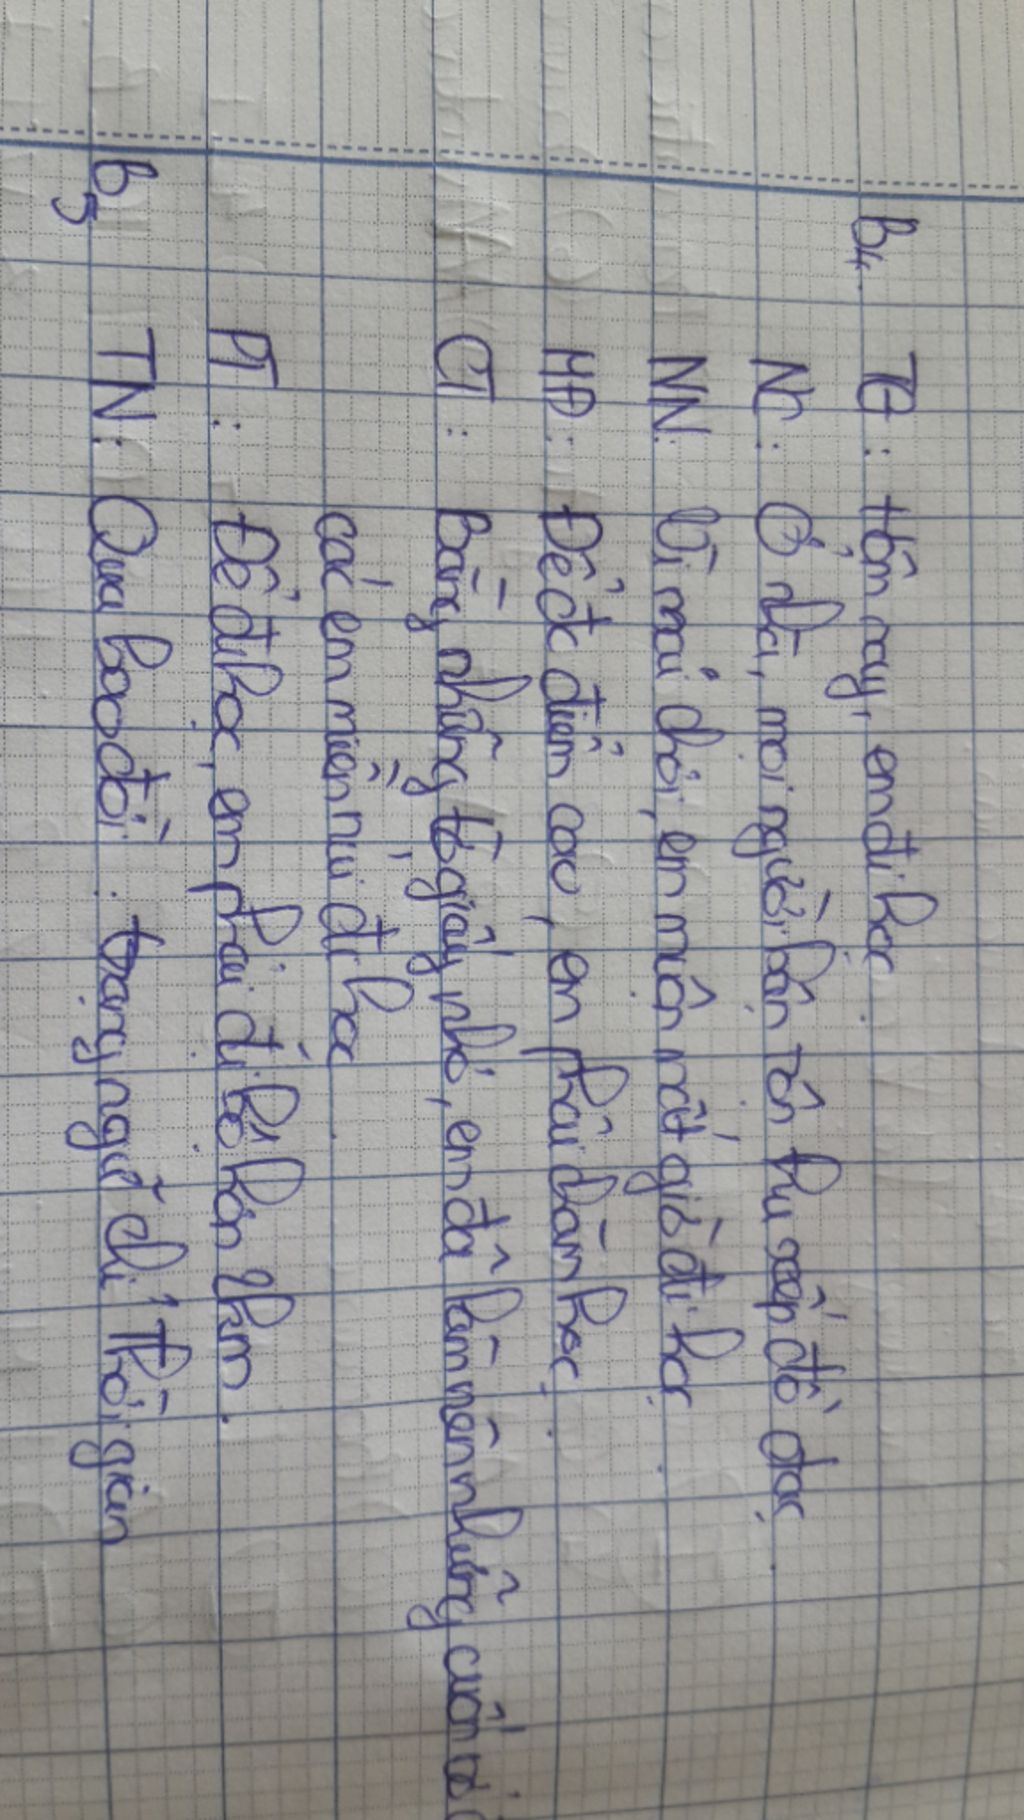 B4. TG : Hôm nay, em đi học.
NC : Ở nhà, mọi người bận rộn thu xếp đồ đạc.
NN: Vì mải chơi, em muộn mất giờ đi học.
MĐ : Để đc điểm cao, em phải chăm học.
CT : Bằng những tờ giấy nhỏ, em đã làm nên những cuốn
các em miền núi đi học.
PT : Để đi học, em phải đi bộ hơn 2km.
B5 TN: Qua bao đời : trạng ngữ chỉ thời gian